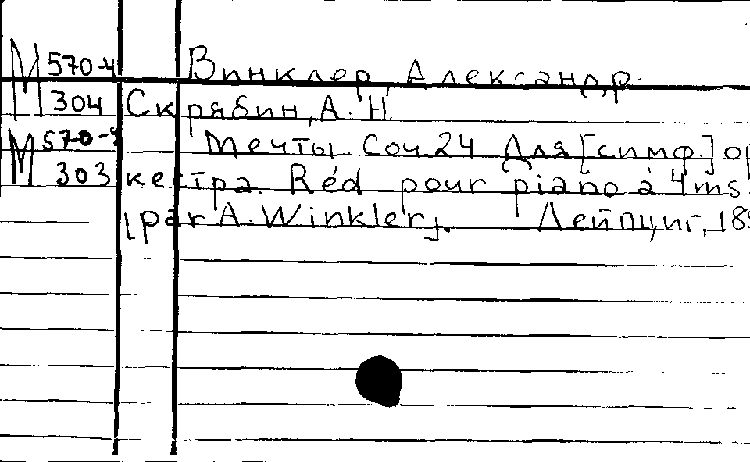 М 570-4 Винклер, Александр.
304 Скрябин, А. Н
М 570-4 Мечты. Соч 24 Для [симф.] ор
303 кестра. Réd pour piano à 4 ms.
[par A. Winkler]. Лейпциг, 189